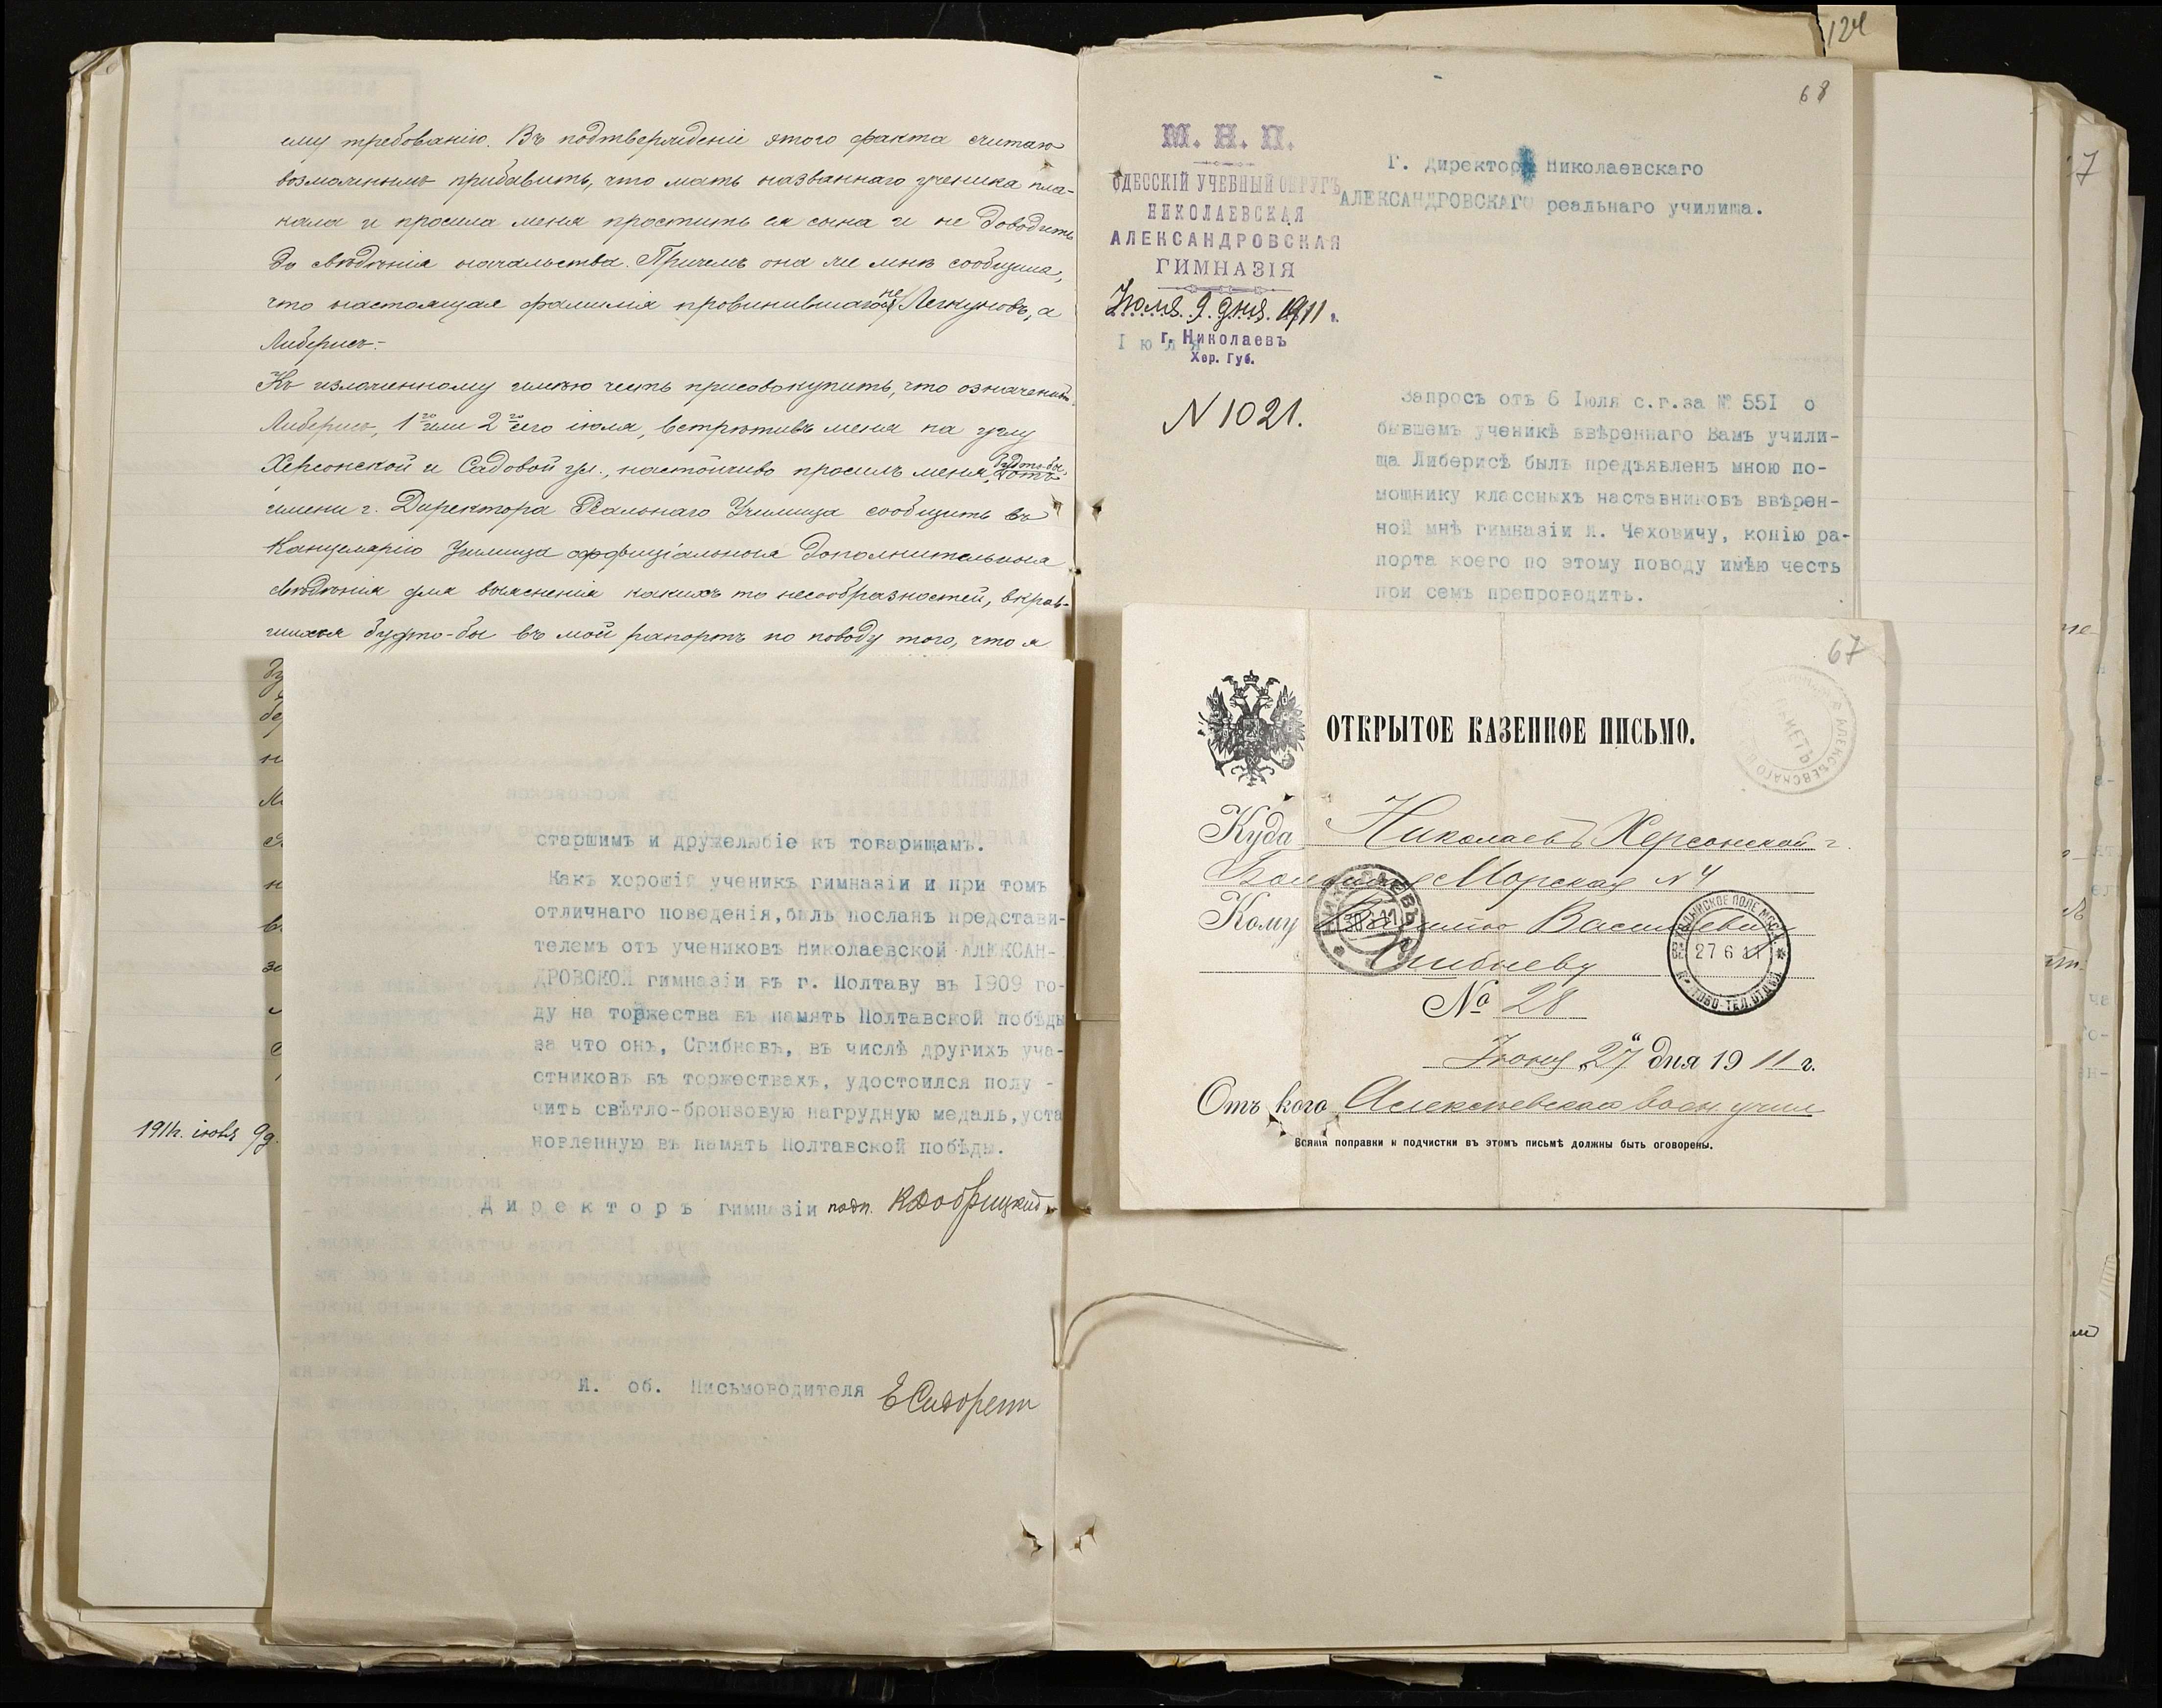 ему требованію. Въ подтвержденіе этого факта считаю
возможнымъ прибавить, что мать названнаго ученика пла-
кала и просила меня простить ея сына и не доводить
до свѣдѣнія начальства. Причемъ она же мнѣ сообщила,
что настоящая фамилія провинившагося не Легкуновъ, а
Либерисъ.-
Къ изложенному имѣю честь присовокупить, что означенный
Либерисъ, 1го или 2го сего іюля, встрѣтивъ меня на углу
Херсонской и Садовой ул., настойчиво просилъ меня, будто-бы отъ
имени г. Директора Реальнаго Училища сообщить въ
Канцелярію Училища оффиціальныя дополнительныя
свѣдѣнія для выясненія какихъ то несообразностей, вкрав-
шихся будто-бы въ мой рапортъ по поводу того, что я
1911г. іюля 9д.
старшимъ и дружелюбіе къ товарищамъ.
Какъ хорошій ученикъ гимназіи и при томъ
отличнаго поведенія, былъ посланъ представи-
телемъ отъ учениковъ Николаевской АЛЕКСАН-
ДРОВСКОЙ гимназіи въ г. Полтаву въ 1909 го-
ду на торжества въ память Полтавской побѣды
за что онъ, Сгибневъ, въ числѣ другихъ уча-
стниковъ въ торжествахъ, удостоился полу -
чить свѣтло-бронзовую нагрудную медаль, уста
новленную въ память Полтавской побѣды.
Директоръ гимназіи подп. К Добрицкій
И. об. Письмоводителя
124
68
М. Н. П.
ОДЕССКІЙ УЧЕБНЫЙ ОКРУГЪ
НИКОЛАЕВСКАЯ
АЛЕКСАНДРОВСКАЯ
ГИМНАЗІЯ
Іюля 9 дня 1911 г.
Іюля
г. Николаевъ
Хер. Губ.
N 1021.
Г. Директору Николаевскаго
АЛЕКСАНДРОВСКАГО реальнаго училища.
Запросъ отъ 6 Іюля с.г. за № 551 о
бывшемъ ученикѣ ввѣреннаго Вамъ учили-
ща Либерисѣ былъ предъявленъ мною по-
мощнику классныхъ наставниковъ ввѣрен-
ной мнѣ гимназіи И. Чеховичу, копію ра-
порта коего по этому поводу имѣю честь
при семъ препроводить.
67
ОТКРЫТОЕ КАЗЕННОЕ ПИСЬМО.
Куда Николаевъ Херсонской г.
Большая Морская № 4
Кому Васильевичу
Сгибневу
№ 28
Іюня "27" дня 1911 г.
Отъ кого Алексѣевскаго воен. учил
Всякія поправки и подчистки въ этомъ письмѣ должны быть оговорены.
НИКОЛАЕВЪ
ХОДЫНСКОЕ ПОЛЕ МОСК.
27 6 11
7